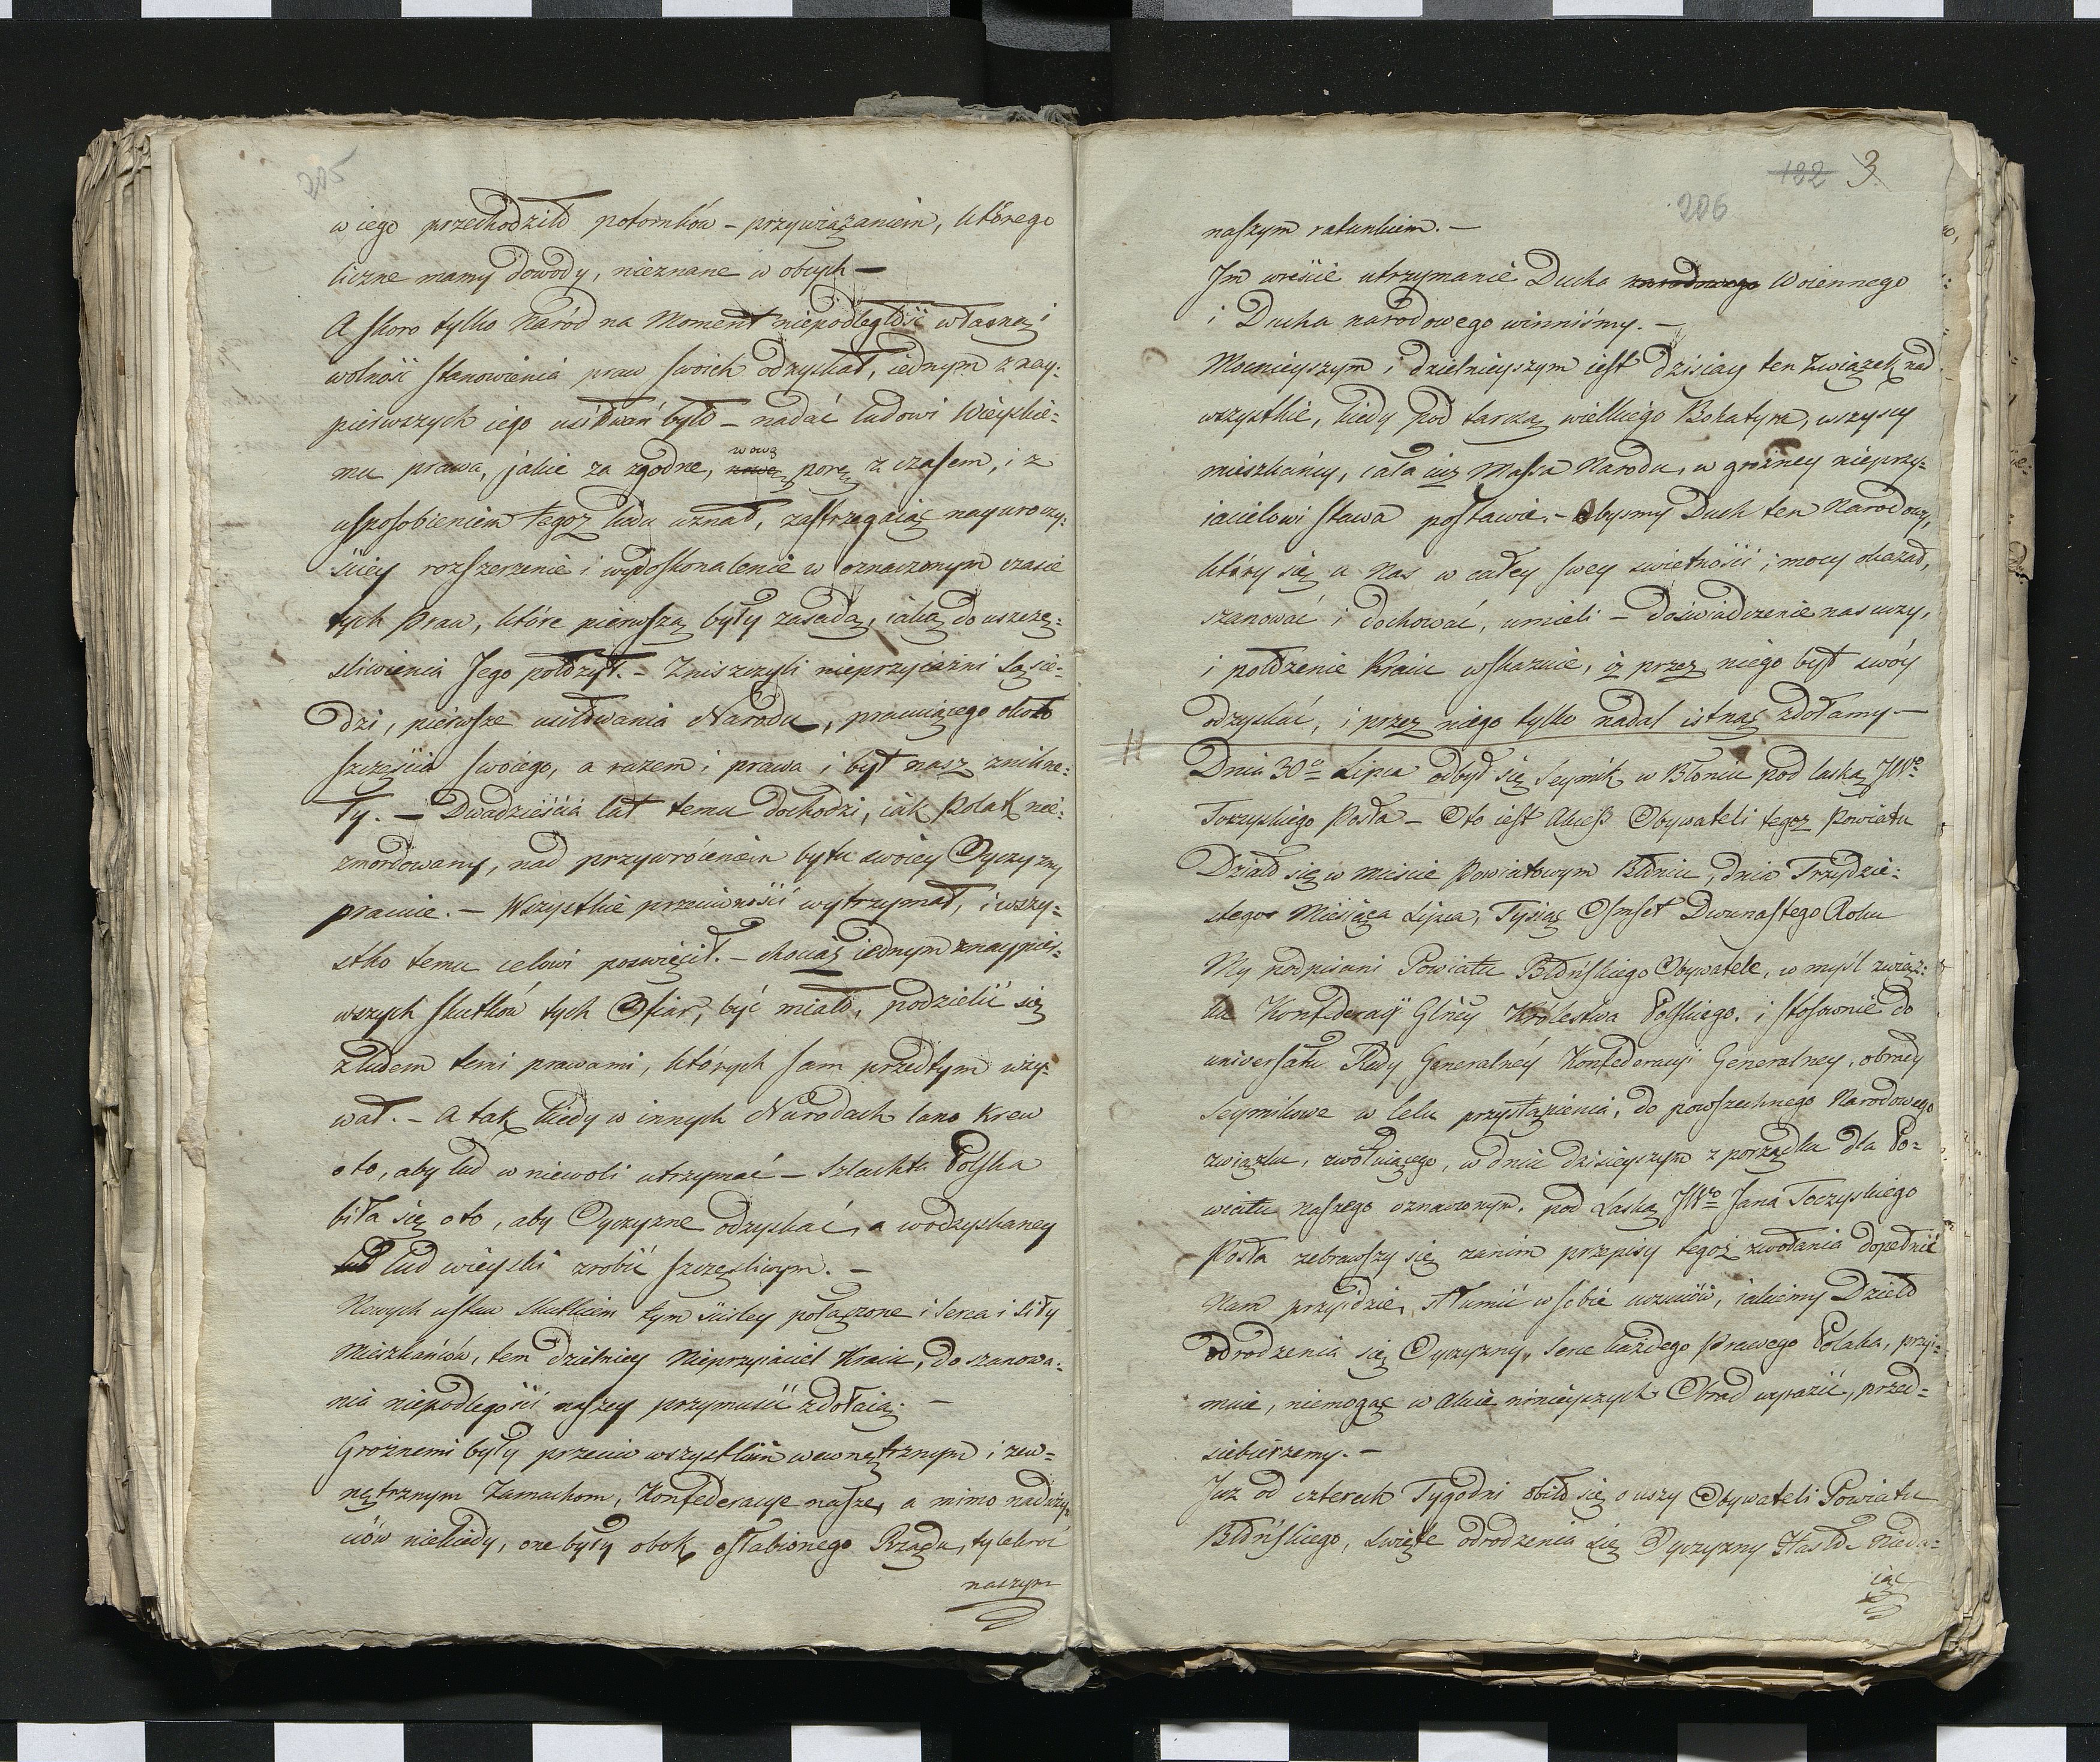 205
w iego przechodziło potomków – przywiązaniem, którego
liczne mamy dowody, nieznane w obcych —
A skoro tylko Naród na Moment niepodległość własną i
wolność stanowienia praw swoich odzyskał, iednym z nay:
pierwszych iego usiłowań było – nadać ludowi Wieyskie:
mu prawa, jakie za zgodne, w ową porę z czasem, i z
usposobieniem tegoż ludu uznał, zastrzegaiąc nayuroczy:
ściey rozszerzenie i wydoskonalenie w oznaczonym czasie
tych Praw, które pierwszą były zasadą, iaką do uszczę:
śliwienia Jego położył. – Zniszczyli nieprzyiaźni Sąsie:
dzi, pierwsze usiłowania Narodu, pracuiącego około
szczęścia swoiego, a razem i prawa i byt nasz znikne:
ły. – Dwadzieścia lat temu dochodzi, iak Polak nie:
zmordowany, nad przywróceniem bytu swoiey Oyczyzny
pracuie. – Wszystkie przeciwności wytrzymał, i wszy:
stko temu celowi poswięcił. – chociaż iednym z naypier:
wszych skutków tych Ofiar, być miało, podzielić się
z ludem temi prawami, których sam przedtym uży:
wał. – A tak kiedy w innych Narodach lano krew
oto, aby lud w niewoli utrzymać – Szlachta Polska
biła się oto, aby Oyczyznę odzyskać, a w odzyskaney
lud lud wieyski zrobić szczęśliwym. –
Nowych ustaw skutkiem tym ściśley połączone i serca i siły
Mieszkańców, tem dzielniey Nieprzyiaciel Kraiu, do szanowa:
nia niepodległości naszey przymusić zdołaią. –
Groźnemi były przeciw wszystkim wewnętrznym i zew=
nętrznym Zamachom, Konfederacye nasze, a mimo naduży:
ciów niekiedy, one były obok osłabionego Rządu, tylekroć
naszym
122 3.
206
naszym ratunkiem. –
Im wreście utrzymanie Ducha narodowego Woiennego
i Ducha narodowego winniśmy. –
Mocnieyszym i dzielnieyszym iest dzisiay ten Związek nad
wszystkie, kiedy pod tarczą wielkiego Bohatyra, wszyscy
mieszkańcy, cała iuż Massa Narodu, w groźney nieprzy:
iacielowi stawa postawie. – Obyśmy Duch ten Narodowy,
który się u Nas w całey swey świetności i mocy okazał,
szanować i dochować, umieli – Doświadczenie nas uczy,
i położenie Kraiu wskazuie, iż przez niego byt swóy
odzyskać, i przez niego tylko nadal istnąć zdołamy –
H Dnia 30º Lipca odbył się Seymik w Błoniu pod laską JWº
Toczyskiego Posła – Oto iest Akceß Obywateli tegoż Powiatu
Działo się w mieście Powiatowym Błoniu, dnia Trzydzie:
stego Miesiąca Lipca, Tysiąc Ośmset Dwunastego Roku
My podpisani Powiatu Błońskiego Obywatele, w myśl związ:
ku Konfederacyi Glney Królestwa Polskiego. i stosownie do
universału Rady Generalney Konfederacyi Generalney, obrady
Seymikowe w celu przystąpienia, do powszechnego Narodowego
związku, zwołuiącego, w dniu dzisieyszym z porządku dla Po=
wiatu naszego oznaczonym. pod Laską JWgo Jana Toczyskiego
Posła zebrawszy się zanim przepisy tegoż zwołania dopełnić
Nam przyidzie, tłumić w sobie uczuciów, iakiemy Dzieło
odrodzenia się Oyczyzny, serce każdego Prawego Polaka, przy:
muie, niemogąc w akcie ninieyszych Obrad wyrazić, przed=
siebierzemy. –
Już od czterech Tygodni obiło się o uszy Obywateli Powiatu
Błońskiego, święte odrodzenia się Oyczyzny Hasło. Nieda:
iąc